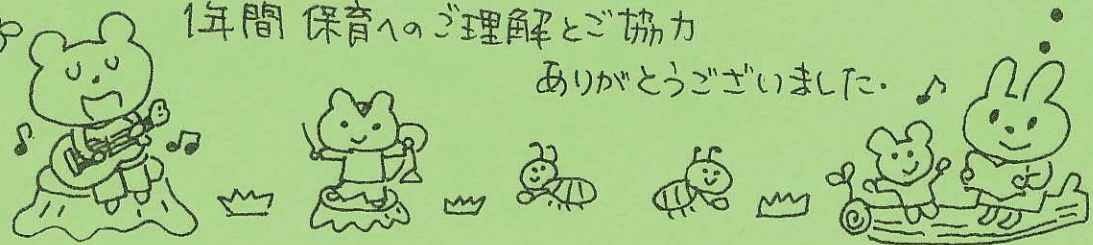 1年間 保育へのご理解とご協力
ありがとうございました.